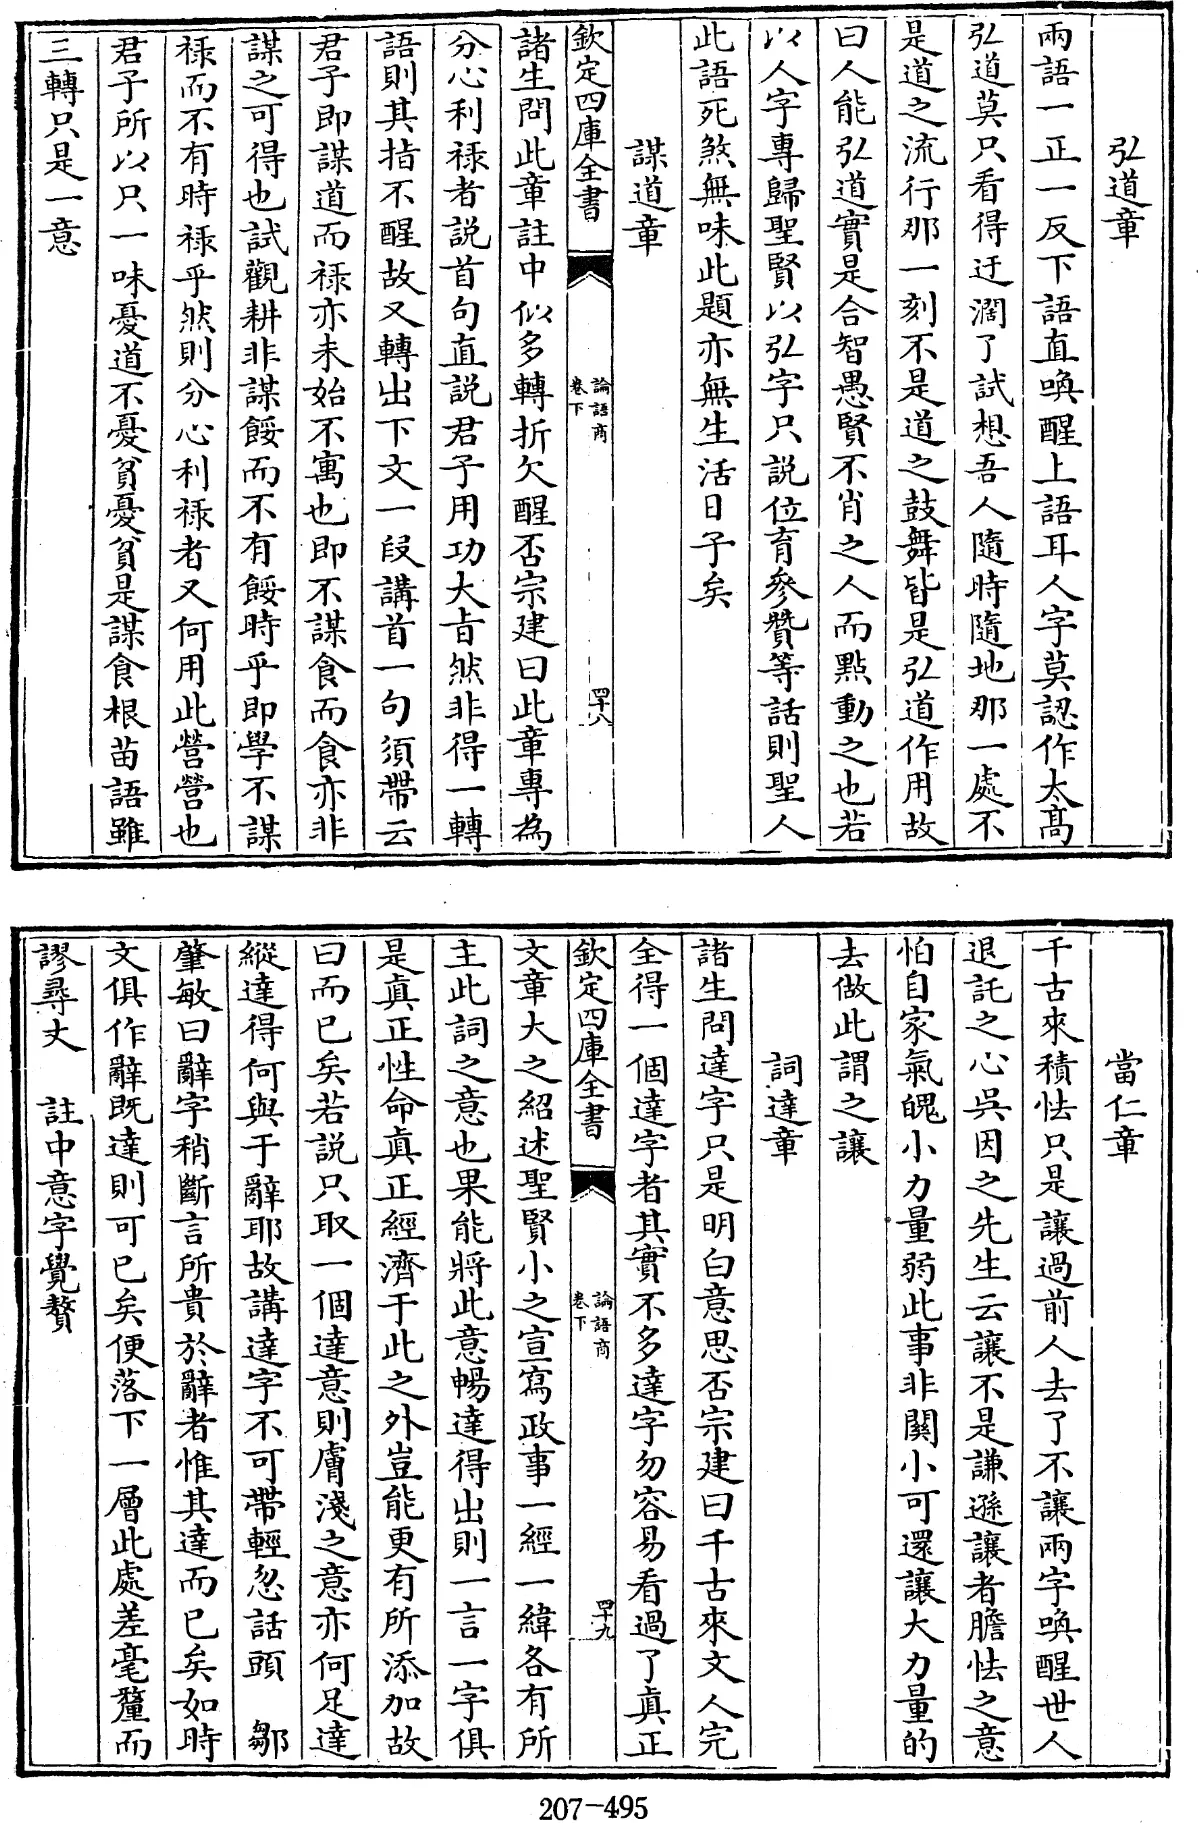 弘道章
兩語一正一反下語直喚醒上語耳人字莫認作太髙
弘道莫只看得迂濶了試想吾人隨時隨地那一處不
是道之流行那一刻不是道之鼓舞皆是弘道作用故
曰人能弘道實是合智愚賢不肖之人而點動之也若
以人字專歸聖賢以弘字只説位育參贊等話則聖人
此語死煞無味此題亦無生活日子矣
謀道章
欽定四庫全書
論語商
卷下
四十八
諸生問此章註中似多轉折欠醒否宗建曰此章專為
分心利禄者説首句直説君子用功大旨然非得一轉
語則其指不醒故又轉出下文一段講首一句須帶云
君子即謀道而禄亦未始不寓也即不謀食而食亦非
謀之可得也試觀耕非謀餒而不有餒時乎即學不謀
禄而不有時禄乎然則分心利禄者又何用此營營也
君子所以只一味憂道不憂貧憂貧是謀食根苗語雖
三轉只是一意
當仁章
千古來積怯只是讓過前人去了不讓兩字喚醒世人
退託之心吳因之先生云讓不是謙遜讓者膽怯之意
怕自家氣魄小力量弱此事非關小可還讓大力量的
去做此謂之讓
詞達章
諸生問達字只是明白意思否宗建曰千古來文人完
全得一個達字者其實不多達字勿容易看過了真正
欽定四庫全書
論語商
卷下
四十九
文章大之紹述聖賢小之宣寫政事一經一緯各有所
主此詞之意也果能將此意暢達得出則一言一字俱
是真正性命真正經濟于此之外豈能更有所添加故
曰而已矣若説只取一個達意則膚淺之意亦何足達
縱達得何與于辭耶故講達字不可帶輕忽話頭　鄒
肇敏曰辭字稍斷言所貴於辭者惟其達而已矣如時
文俱作辭既達則可已矣便落下一層此處差毫釐而
謬尋丈　註中意字覺贅
207-495